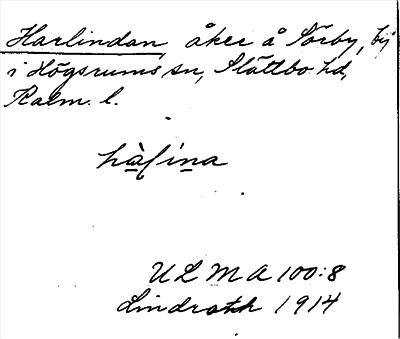 Harlindan, åker å Törby, by
i Högsrums sn, Slättbo hd,
Kalm. l.
hàlina
ULMA 100:8
Lindroth 1914